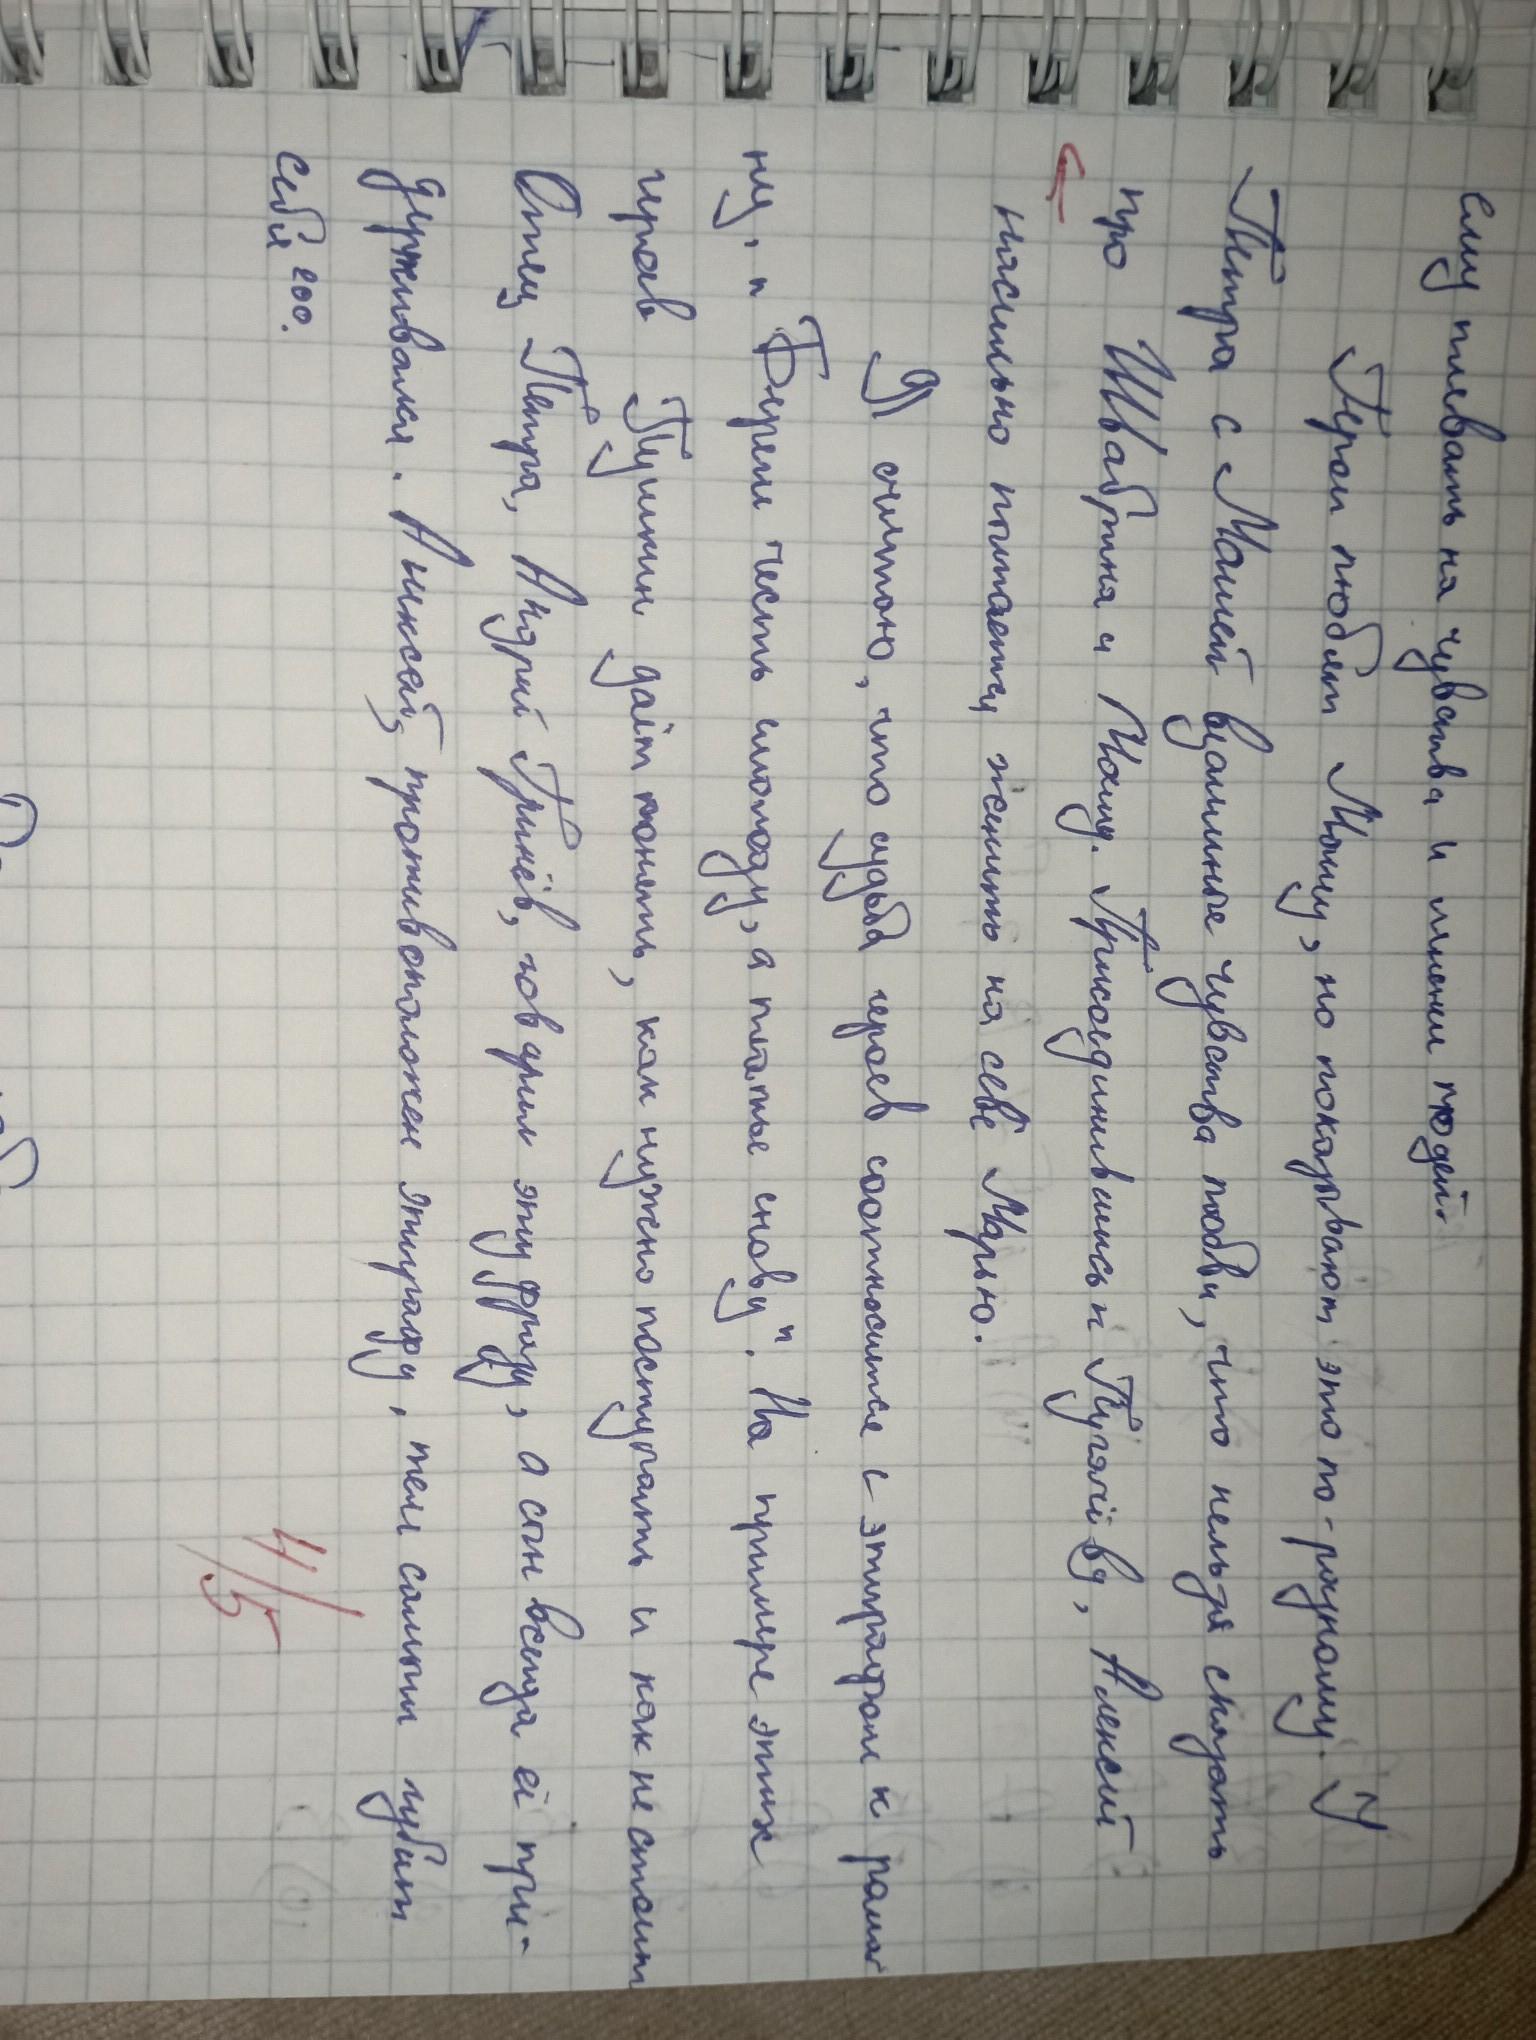 ему плевать на чувства и мнении людей.
Герои любят Машу, но показывают это по-разному. У
Петра с Машей взаимные чувства любви, что нельзя сказать
про Швабрина и Машу. Присоединившись к Пугачёву, Алексей
насильно пытается женить на себе Марью.
Я считаю, что судьба героев соотносится с эпиграфом к рома-
ну, "Береги честь смолоду, а платье снову". На примере этих
героев Пушкин даёт понять, как нужно поступать и как не стоит
Отец Петра, Андрей Гринёв, говарил эту фразу, а сын всегда её при-
держивался. Алексей противоположен эпиграфу, тем самым губит
себя
4/5